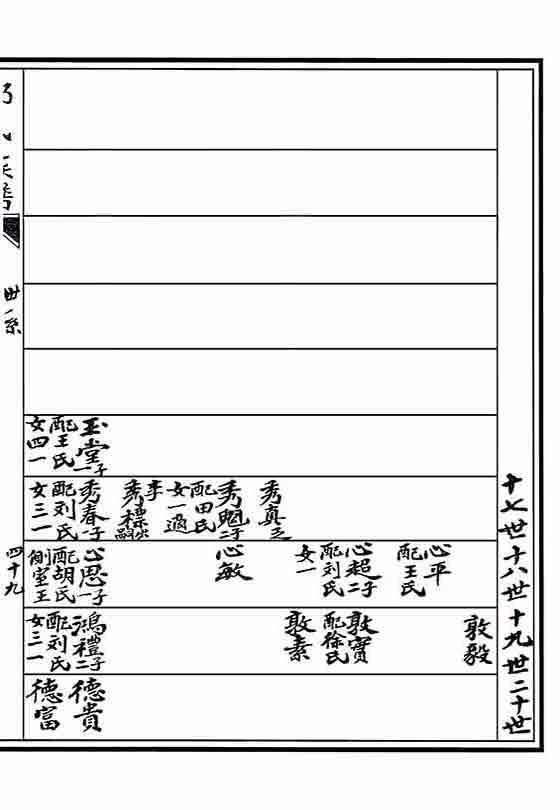 十七世十八世十九世二十世
玉堂一子
配王氏
女四一
秀真乏
秀魁二子
配田氏
女一適
李
秀標出嗣
秀春一子
配刘氏
女三一
心平
配王氏
心超二子
配刘氏
女一
心敏
心思一子
配胡氏
側室王
敦毅
敦寶
配徐氏
敦素
鴻禮二子
配刘氏
女三一
德貴
德富
世系
四十九